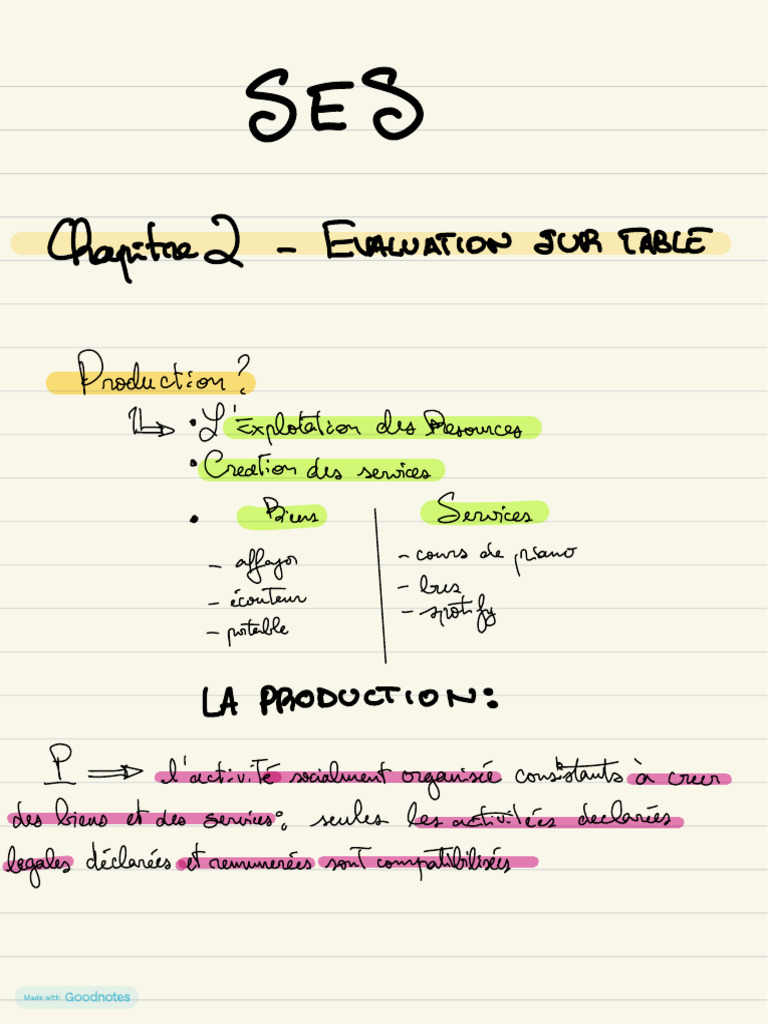 SES
Chapitre 2 - EVALUATION SUR TABLE
Production?
• L'Explotation des Resources
• Creation des services
• Biens Services
- cours de piano
- écouteur - bus
- portable - spotify
LA PRODUCTION:
P ⇒ l'activité socialment organisée consistants à creer
des biens et des services: seules les activitées declarées
legales déclarées et remunerées sont compatibilisés
Made with Goodnotes